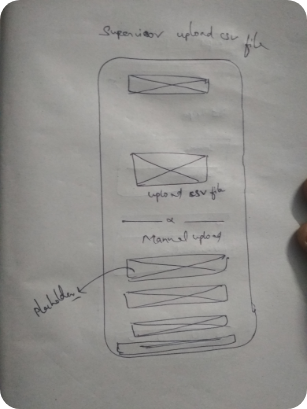 Supervisor upload csv file
upload csv file
or
Manual upload
placeholder